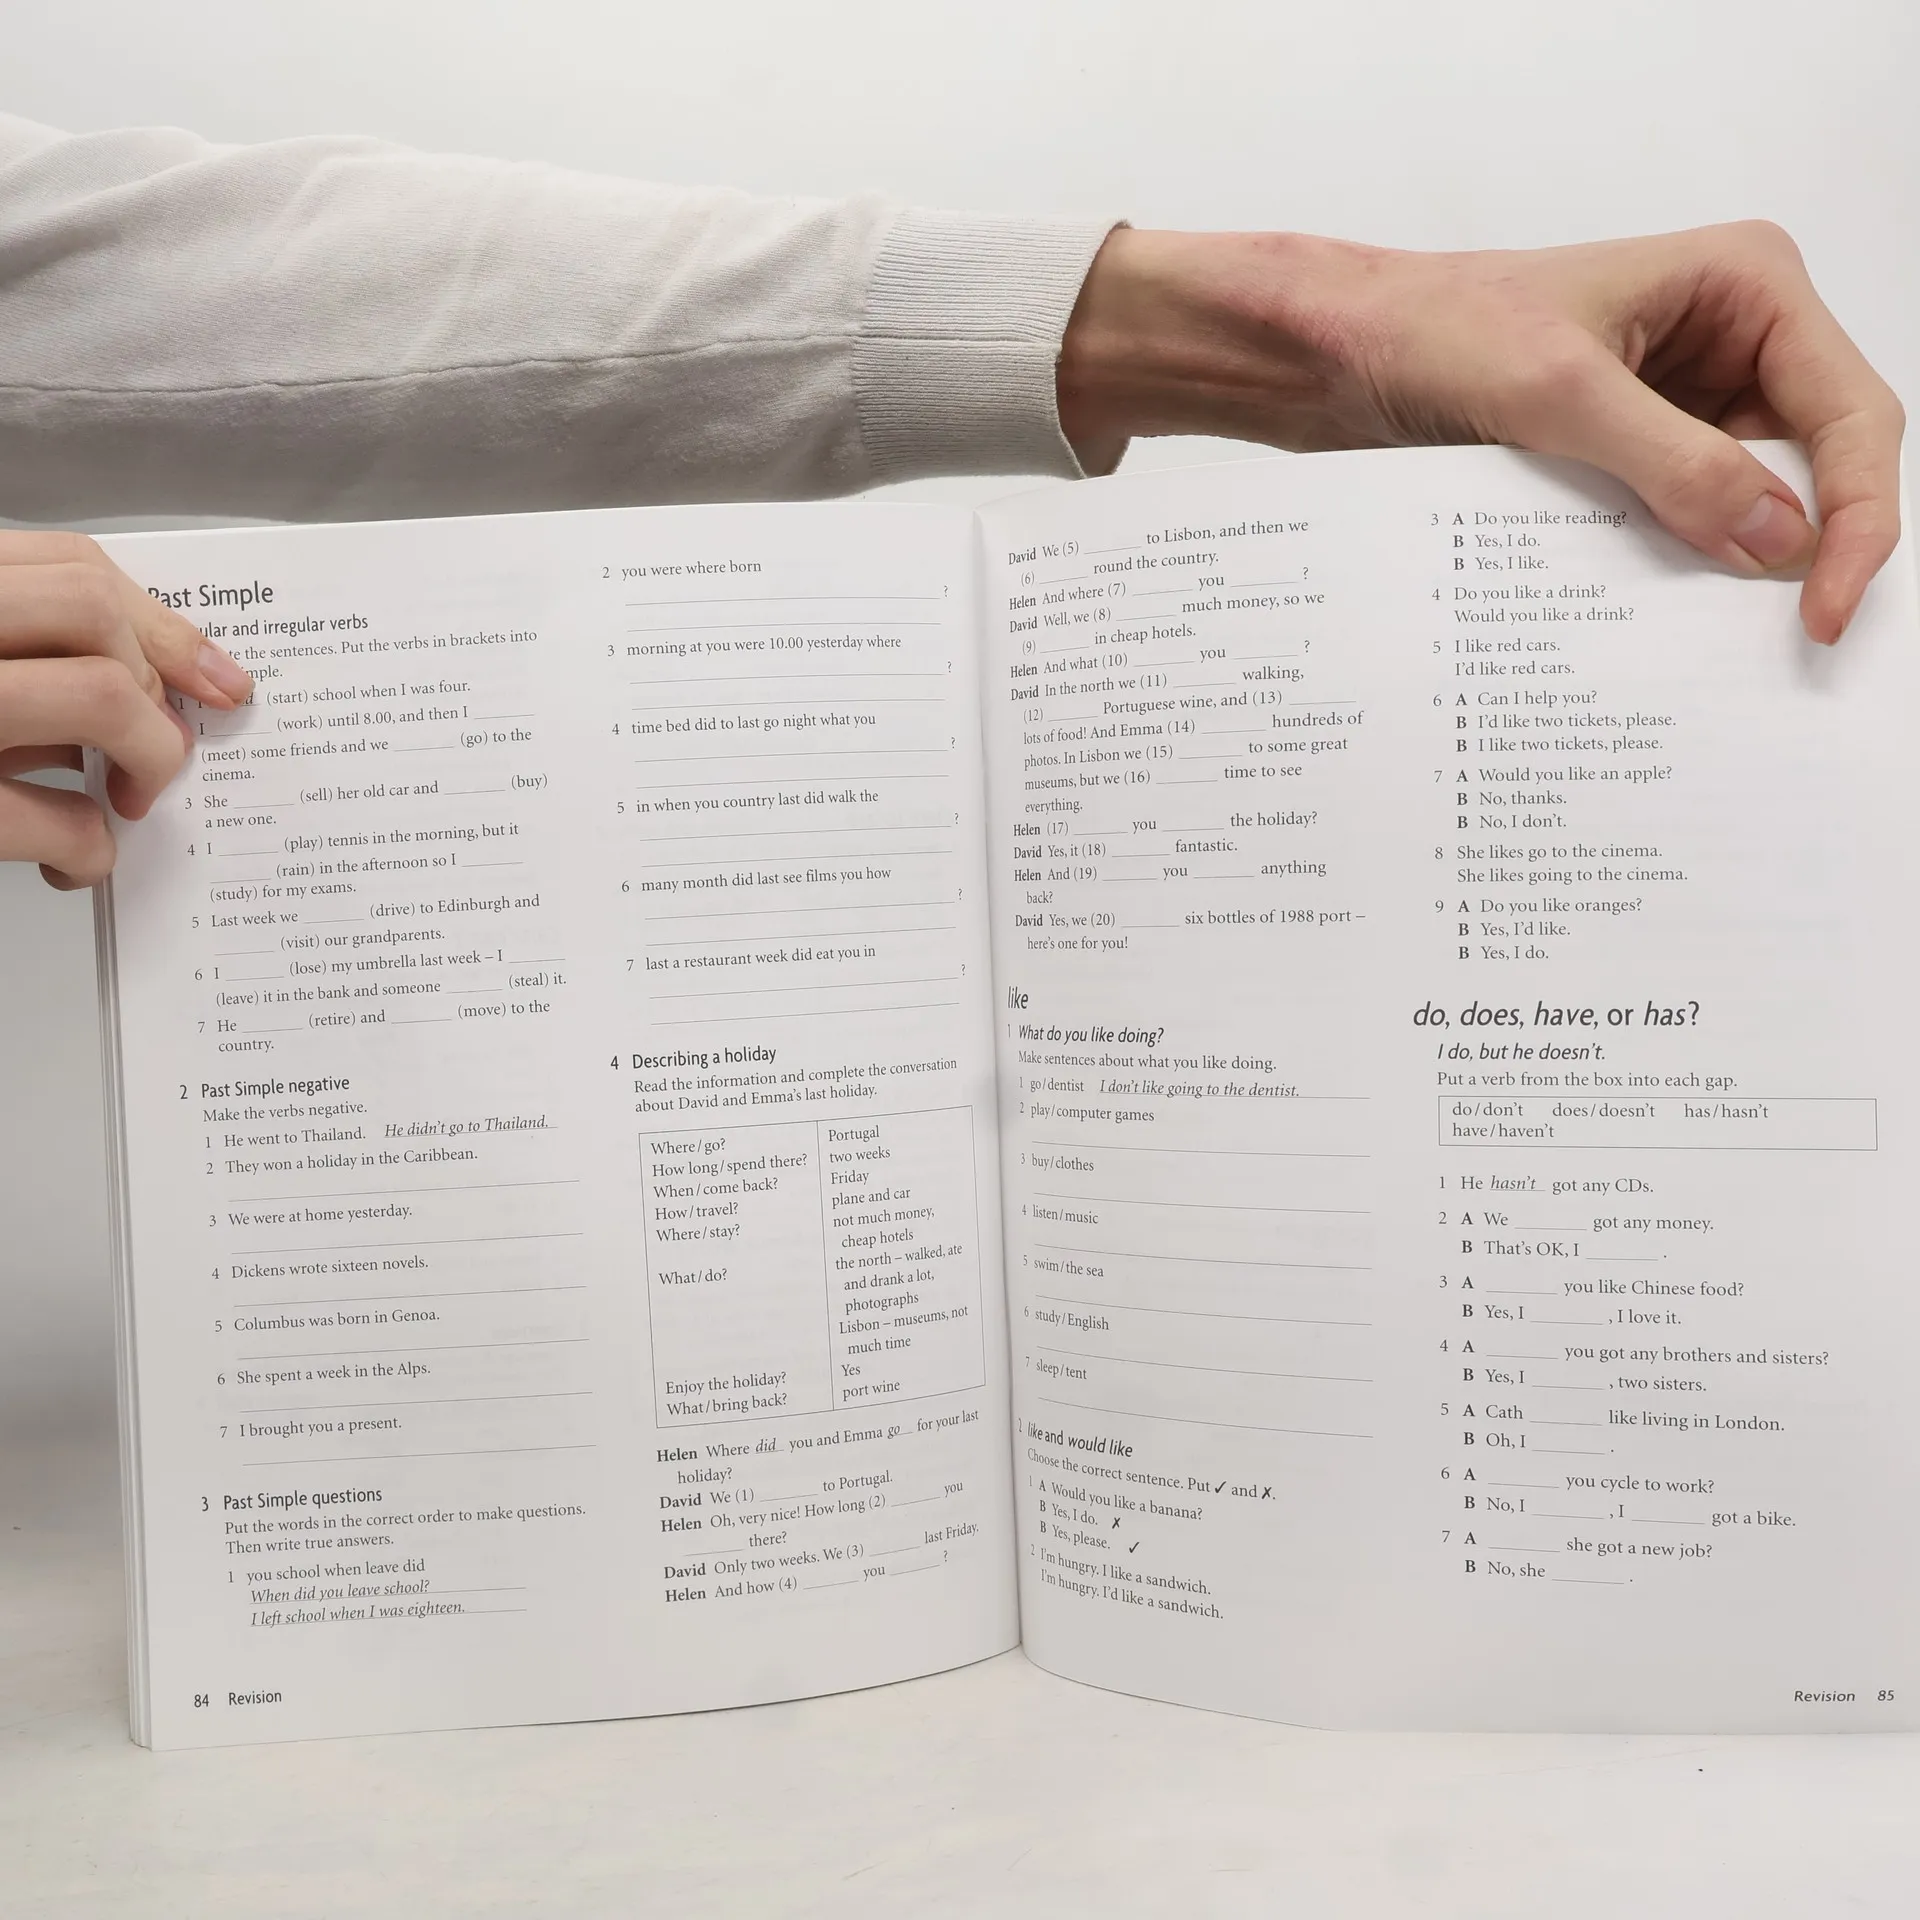 Past Simple
ular and irregular verbs
te the sentences. Put the verbs in brackets into
mple.
1 I d (start) school when I was four.
I ______ (work) until 8.00, and then I ______
(meet) some friends and we ______ (go) to the
cinema.
3 She ______ (sell) her old car and ______ (buy)
a new one.
4 I ______ (play) tennis in the morning, but it
______ (rain) in the afternoon so I ______
(study) for my exams.
5 Last week we ______ (drive) to Edinburgh and
______ (visit) our grandparents.
6 I ______ (lose) my umbrella last week – I ______
(leave) it in the bank and someone ______ (steal) it.
7 He ______ (retire) and ______ (move) to the
country.
2 Past Simple negative
Make the verbs negative.
1 He went to Thailand. He didn't go to Thailand.
2 They won a holiday in the Caribbean.
3 We were at home yesterday.
4 Dickens wrote sixteen novels.
5 Columbus was born in Genoa.
6 She spent a week in the Alps.
7 I brought you a present.
3 Past Simple questions
Put the words in the correct order to make questions.
Then write true answers.
1 you school when leave did
When did you leave school?
I left school when I was eighteen.
84 Revision
2 you were where born
?
3 morning at you were 10.00 yesterday where
?
4 time bed did to last go night what you
?
5 in when you country last did walk the
?
6 many month did last see films you how
?
7 last a restaurant week did eat you in
?
4 Describing a holiday
Read the information and complete the conversation
about David and Emma's last holiday.
Where/go? Portugal
How long/spend there? two weeks
When/come back? Friday
How/travel? plane and car
Where/stay? not much money,
cheap hotels
What/do? the north – walked, ate
and drank a lot,
photographs
Lisbon – museums, not
much time
Enjoy the holiday? Yes
What/bring back? port wine
Helen Where did you and Emma go for your last
holiday?
David We (1) ______ to Portugal.
Helen Oh, very nice! How long (2) ______ you
______ there?
David Only two weeks. We (3) ______ last Friday.
Helen And how (4) ______ you ______ ?
David We (5) ______ to Lisbon, and then we
(6) ______ round the country.
Helen And where (7) ______ you ______ ?
David Well, we (8) ______ much money, so we
(9) ______ in cheap hotels.
Helen And what (10) ______ you ______ ?
David In the north we (11) ______ walking,
(12) ______ Portuguese wine, and (13) ______
lots of food! And Emma (14) ______ hundreds of
photos. In Lisbon we (15) ______ to some great
museums, but we (16) ______ time to see
everything.
Helen (17) ______ you ______ the holiday?
David Yes, it (18) ______ fantastic.
Helen And (19) ______ you ______ anything
back?
David Yes, we (20) ______ six bottles of 1988 port –
here's one for you!
like
1 What do you like doing?
Make sentences about what you like doing.
1 go/dentist I don't like going to the dentist.
2 play/computer games
3 buy/clothes
4 listen/music
5 swim/the sea
6 study/English
7 sleep/tent
2 like and would like
Choose the correct sentence. Put ✓ and ✗.
1 A Would you like a banana?
B Yes, I do. ✗
B Yes, please. ✓
2 I'm hungry. I like a sandwich.
I'm hungry. I'd like a sandwich.
3 A Do you like reading?
B Yes, I do.
B Yes, I like.
4 Do you like a drink?
Would you like a drink?
5 I like red cars.
I'd like red cars.
6 A Can I help you?
B I'd like two tickets, please.
B I like two tickets, please.
7 A Would you like an apple?
B No, thanks.
B No, I don't.
8 She likes go to the cinema.
She likes going to the cinema.
9 A Do you like oranges?
B Yes, I'd like.
B Yes, I do.
do, does, have, or has?
I do, but he doesn't.
Put a verb from the box into each gap.
do/don't does/doesn't has/hasn't
have/haven't
1 He hasn't got any CDs.
2 A We ______ got any money.
B That's OK, I ______ .
3 A ______ you like Chinese food?
B Yes, I ______ , I love it.
4 A ______ you got any brothers and sisters?
B Yes, I ______ , two sisters.
5 A Cath ______ like living in London.
B Oh, I ______ .
6 A ______ you cycle to work?
B No, I ______ , I ______ got a bike.
7 A ______ she got a new job?
B No, she ______ .
Revision 85